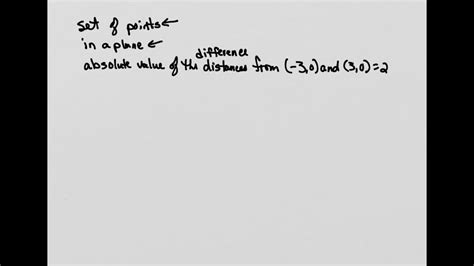 set of points←
in a plane←
difference
absolute value of the distances from (-3,0) and (3,0) = 2